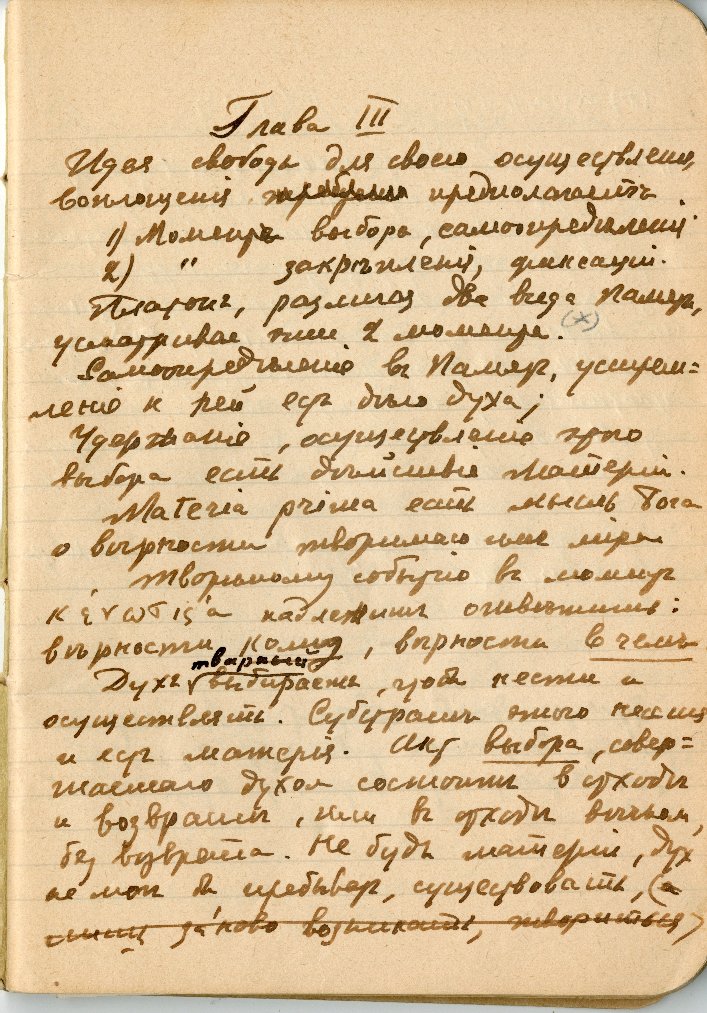 Глава III
Идея свободы для своего осуществленія,
воплощенія требуетъ предполагаетъ
1) Моментъ выбора, самоопредѣленія
2) " закрѣпленія, фиксаціи.
Платонъ, различая два вида памяти,
усматривает эти 2 момента. (x)
Самоопредѣленіе въ память, устрем=
леніе к ней есть дѣло духа;
Удержаніе, осуществленіе этого
выбора есть дѣйствіе матеріи.
Materia prima есть мысль Бога
о вѣрности творимаго им міра
Тварному событію въ момент
κένωσις'а надлежитъ отвѣтить:
вѣрности кому, вѣрности в чемъ
тварный
Духъ √ выбираетъ, чтобы нести и
осуществлять. Субстратъ этого несенія
и есть матерія. Акт выбора, совер=
шаемаго духом состоитъ в отходѣ
и возвратѣ, или въ отходѣ вѣчном,
без возврата. Не будь матеріи, дух
не мог бы пребывать, существовать, (а
лишь заново возникать, твориться)